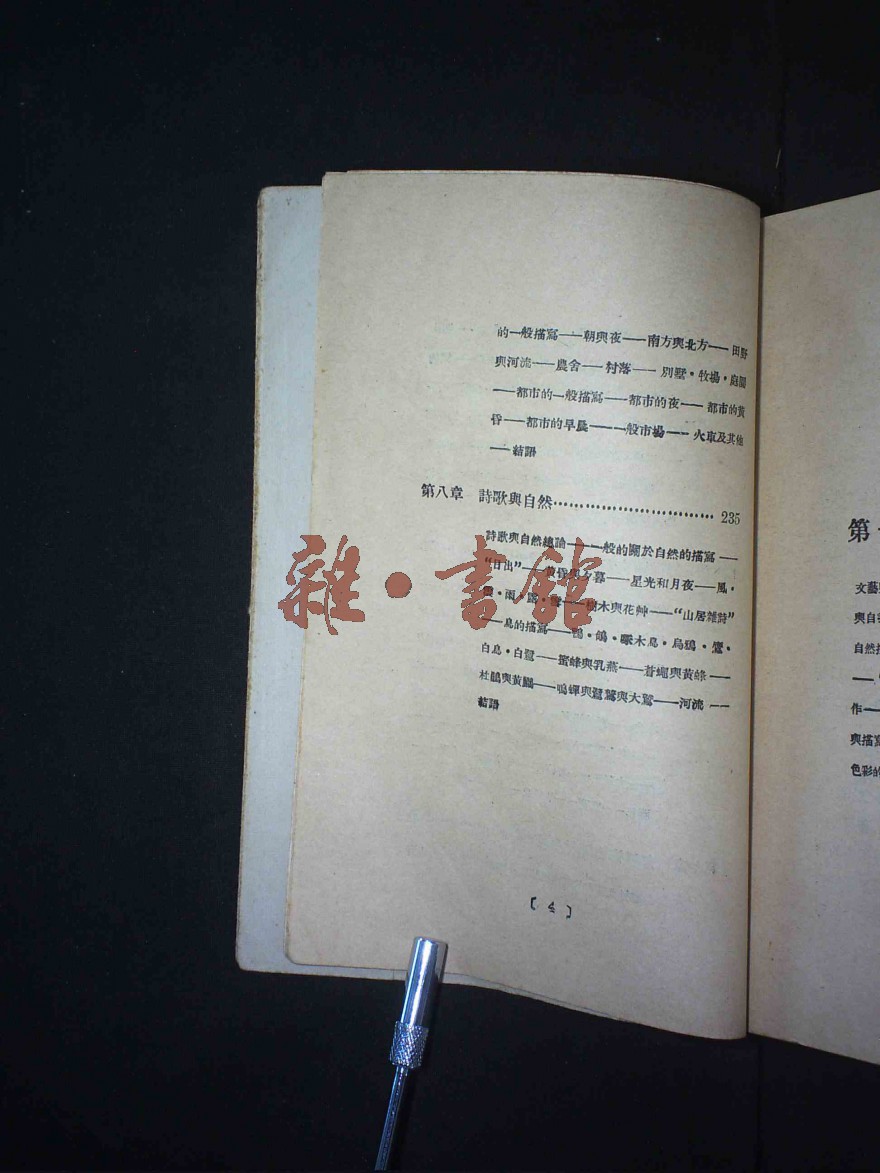 的一般描寫——朝與夜——南方與北方——田野
與河流——農舍——村落——別墅·牧場·庭園
——都市的一般描寫——都市的夜——都市的黃
昏——都市的早晨——一般市場——火車及其他
——結語
第八章 詩歌與自然…………………………… 235
詩歌與自然總論——一般的關於自然的描寫——
“日出”——黃昏與夕暮——星光和月夜——風·
·雨·露·——樹木與花艸——“山居雜詩”
——鳥的描寫——鴨·鴿·啄木鳥·烏鴉·鷹·
白鳥·白鷺——蜜蜂與乳燕——蒼蠅與黃蜂——
杜鵑與黃鸝——鳴蟬與鷺鷥與大鷲——河流——
結語
〔4〕
雜·書館
第
文藝
與自
自然
——
作——
與描寫
色彩的